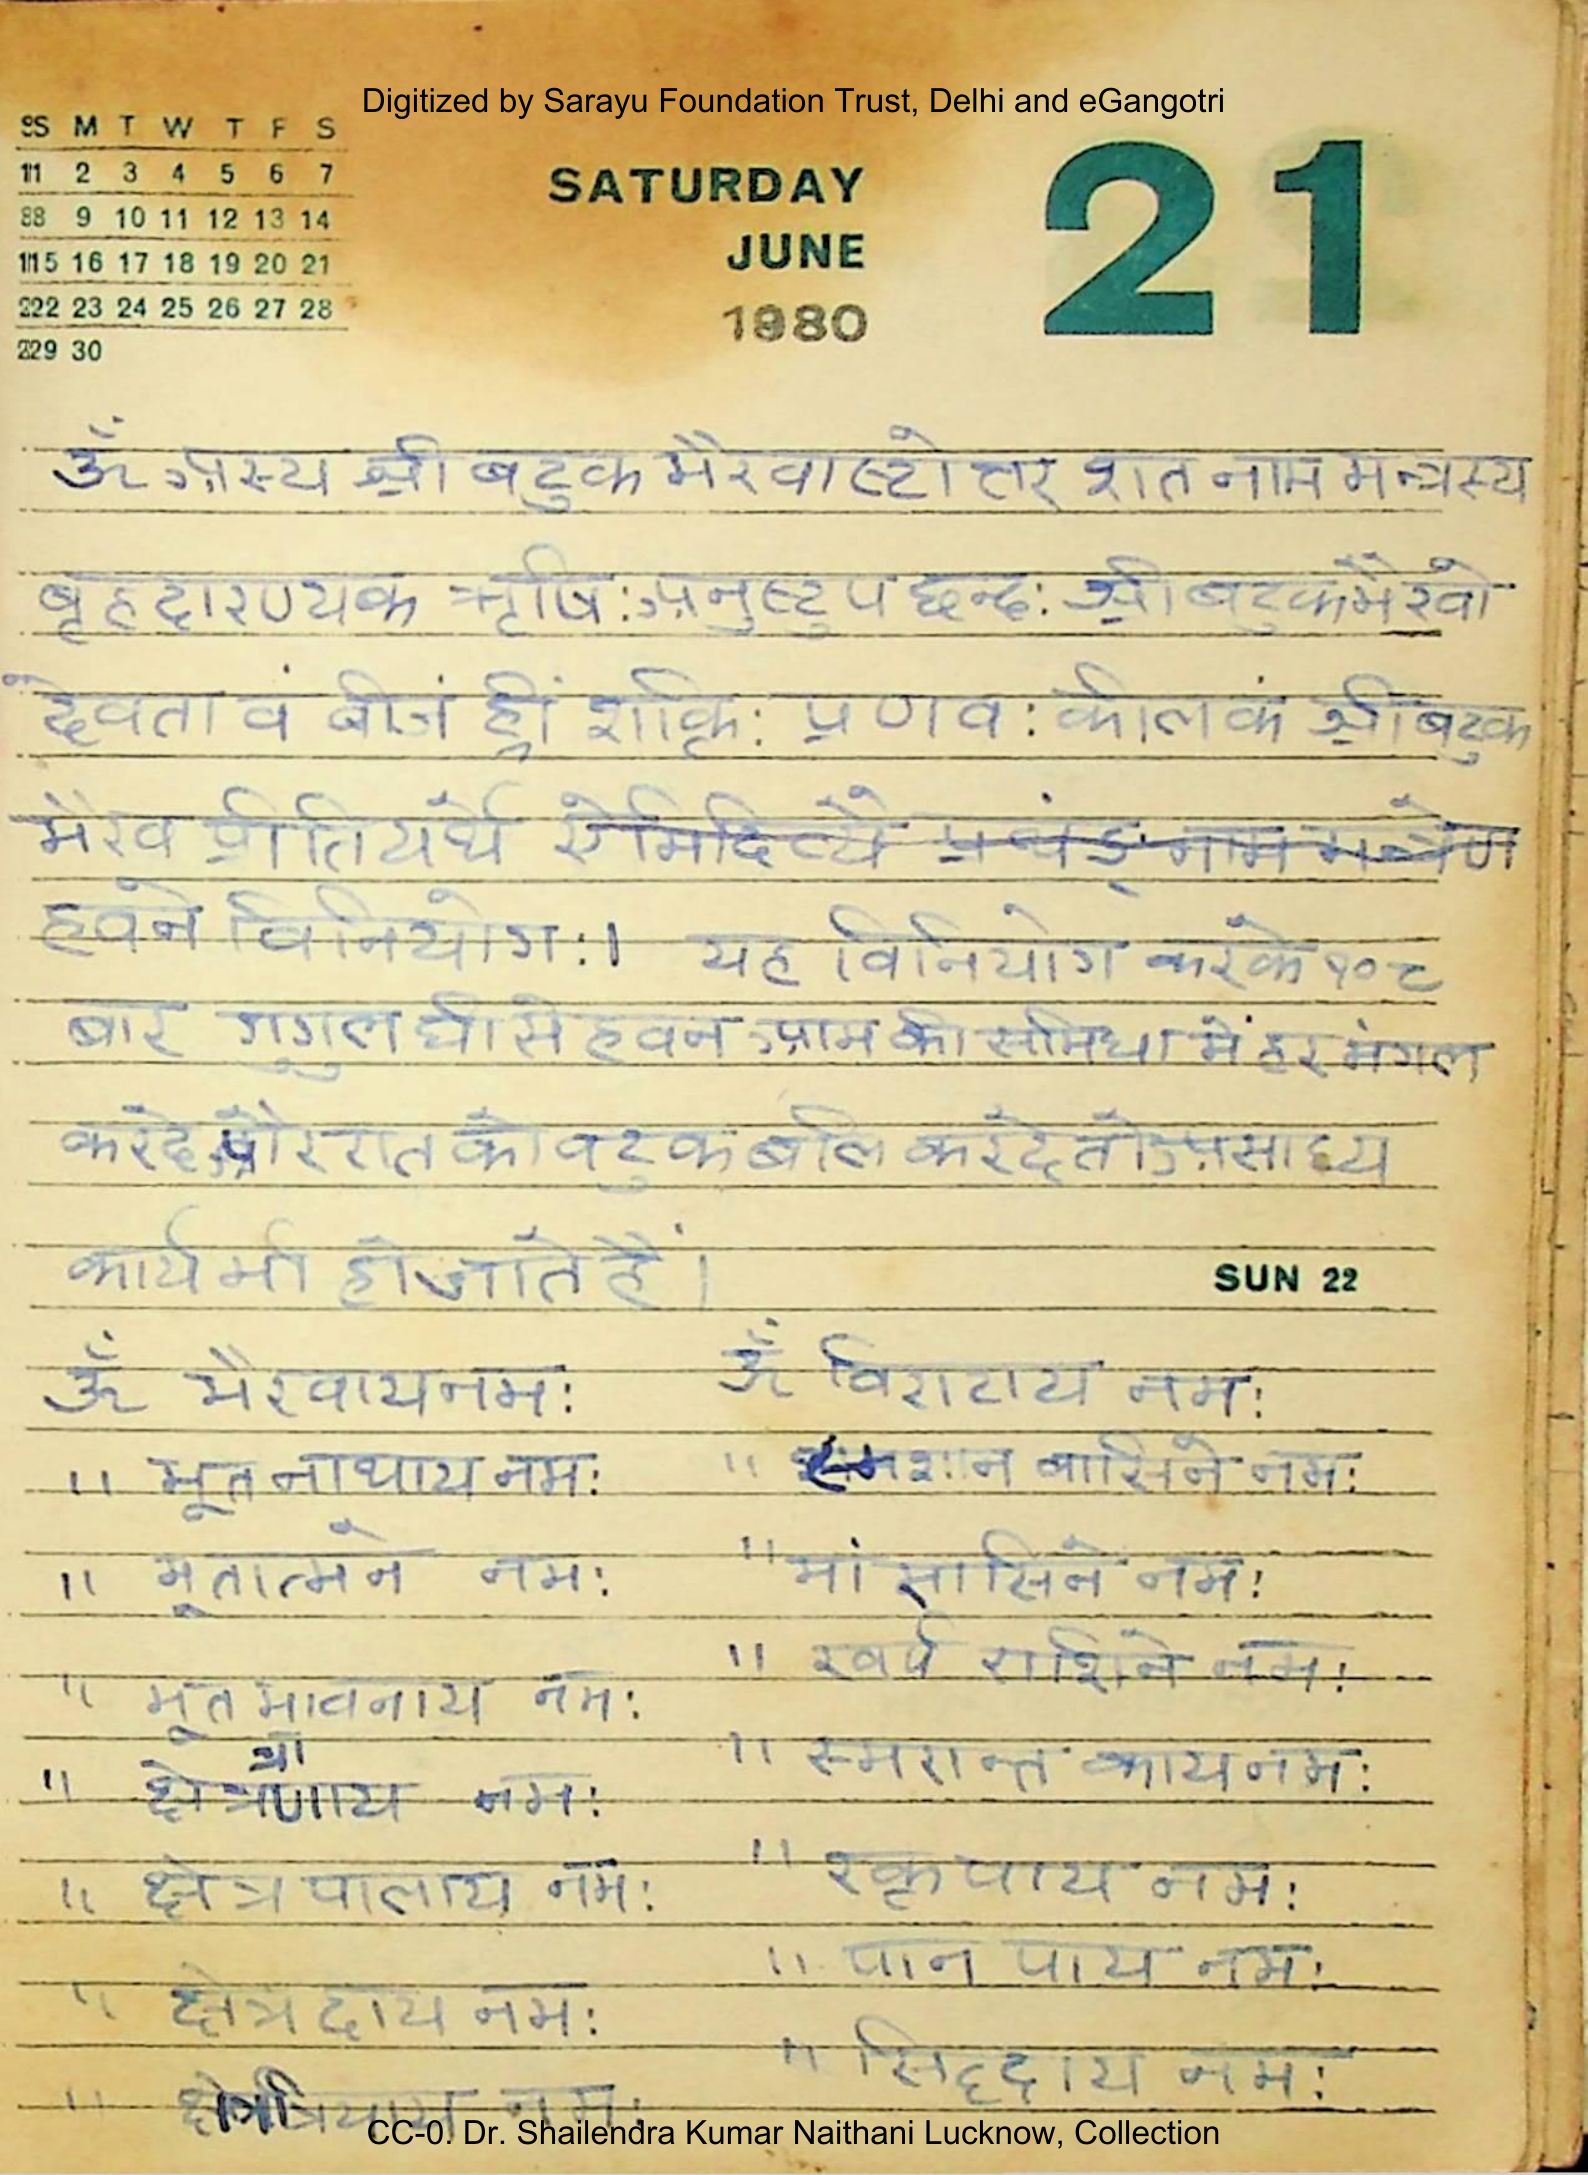 Digitized by Sarayu Foundation Trust, Delhi and eGangotri
S M T W T F S
1 2 3 4 5 6 7
8 9 10 11 12 13 14
15 16 17 18 19 20 21
22 23 24 25 26 27 28
29 30
SATURDAY
JUNE
1980
21
ॐ अस्य श्री बटुक भैरवाष्टोत्तर शत नाम मन्त्रस्य
बृहदारण्यक ऋषि: अनुष्टुप छन्द: श्री बटुक भैरवो
देवता वं बीजं ह्रीं शक्ति: प्रणव: कीलकं श्री बटुक
भैरव प्रीतियर्थे नाम मन्त्रेण
हवने विनियोग:। यह विनियोग करके १०८
बार गुगुल घी से हवन आम की समिधा में हर मंगल
करदे और रात को वटुक बलि करदे तो असाध्य
कार्य भी हो जाते हैं।
SUN 22
ॐ भैरवाय नम:
" भूतनाथाय नम:
" भूतात्मने नम:
" भूत भावनाय नम:
" नम:
" क्षेत्र पालाय नम:
" क्षेत्रदाय नम:
" नम:
ॐ विराटाय नम:
" श्मशान वासिने नम:
" मांसासिने नम:
" राशिने नम:
" स्मरान्त काय नम:
" रक्तपाय नम:
" पान पाय नम:
" सिद्दाय नम:
CC-0. Dr. Shailendra Kumar Naithani Lucknow, Collection